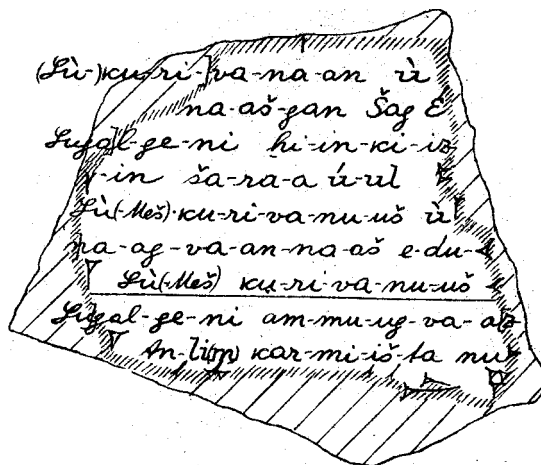 (Lù-)ku-ri-]va-na-an ù
na-aš-gan Šag É
Lugal-ge-ni hi-in-ki-iz
-in ša-ra-a ú-ul
Lù(-Meš)-ku-ri-va-nu-uš ù
na-ag-va-an-na-aš e-du-
Lù(-Meš) ku-ri-va-nu-uš
Lugal-ge-ni am-mu-ug-va-az
An-li(m) kar-mi-iš-ta nu